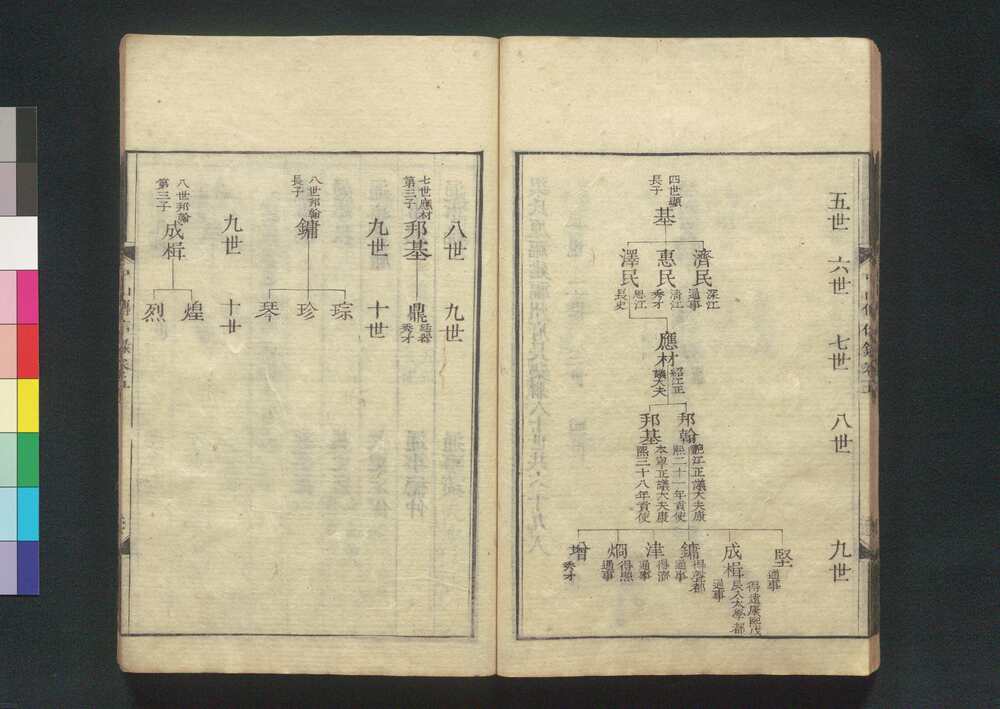 五世
六世
七世
八世
九世
四世顯
長子
基
濟民
深江
通事
惠民
清江
秀才
澤民
思江
長史
應材
紹江正
議大夫
邦翰
江正議大夫康
熙二十一年貢使
邦基
本寧正議大夫康
熙三十八年貢使
堅
通事
成楫
得遠康熙戊
辰入太學都
通事
鏞
得聲都
通事
津
得濟
通事
烱
得熙
通事
增
秀才
中山傳信錄卷五
八世
九世
七世應材
第三子
邦基
鼎
廷器
秀才
九世
十世
八世邦翰
長子
鏞
琮
珍
琴
九世
十世
八世邦翰
第三子
成楫
煌
烈
中山傳信錄卷五